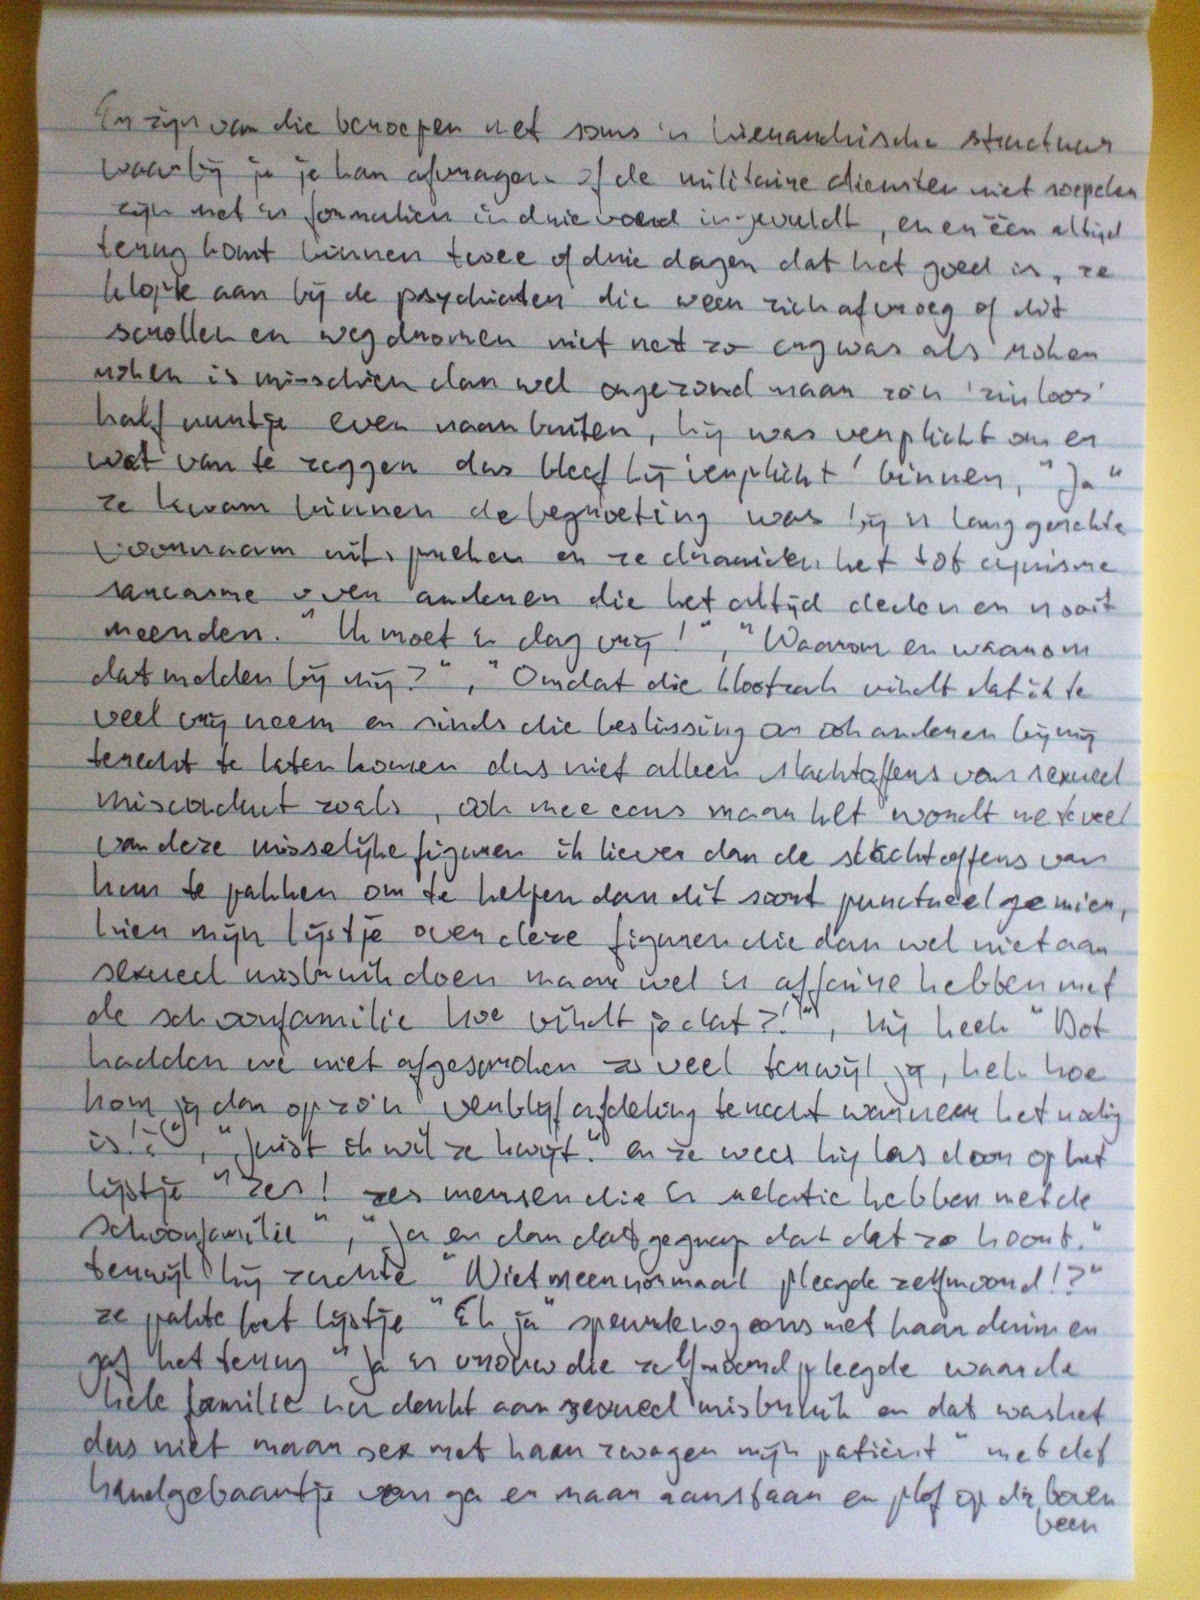 Er zijn van die beroepen met soms 'n hierarchische structuur
waarbij je je kan afvragen of de militaire diensten niet soepeler
zijn met 'n formulier in drievoud ingevuldt, en er één altijd
terug komt binnen twee of drie dagen dat het goed is, ze
klopte aan bij de psychiater die weer zich afvroeg of dit
scrollen en wegdromen niet net zo erg was als roken
roken is misschien dan wel ongezond maar zo'n 'zinloos'
half uurtje even naar buiten, hij was verplicht om er
wat van te zeggen dus bleef hij 'verplicht' binnen, "Ja"
ze kwam binnen de begroeting was hij 'n lang gerekte
voornaam uitspreken en ze draaiden het tot cynisme
sarcasme over anderen die het altijd deden en nooit
meenden. "Ik moet 'n dag vrij!", "Waarom en waarom
dat melden bij mij?", "Omdat die klootzak vindt dat ik te
veel vrij neem en sinds die beslissing om ook anderen bij mij
terecht te laten komen dus niet alleen slachtoffers van sexueel
misconduct zoals, ook mee eens maar het wordt me te veel
van deze misselijke figuren ik liever dan de slachtoffers van
hun te pakken om te helpen dan dit soort punctueel gemier,
hier mijn lijstje over deze figuren die dan wel niet aan
sexueel misbruik doen maar wel 'n affaire hebben met
de schoonfamilie hoe vindt je dat?!", hij keek "Dat
hadden we niet afgesproken zo veel terwijl jij, hek hoe
kom jij dan op zo'n verblijfafdeling terecht wanneer het nodig
is!?", "Juist ik wil ze kwijt." en ze wees hij las door op het
lijstje "zes! zes mensen die 'n relatie hebben met de
schoonfamilie", "Ja en dan dat gegrap dat dat zo hoort."
terwijl hij zuchtte "Niet meer normaal pleegde zelfmoord!?"
ze pakte het lijstje "Eh ja" speurde nog eens met haar duim en
gaf het terug "Ja 'n vrouw die zelfmoord pleegde waar de
hele familie nu denkt aan sexueel misbruik en dat was het
dus niet maar sex met haar zwager mijn patiënt" met dat
handgebaartje van ga er maar aanstaan en plof op d'r boven
been